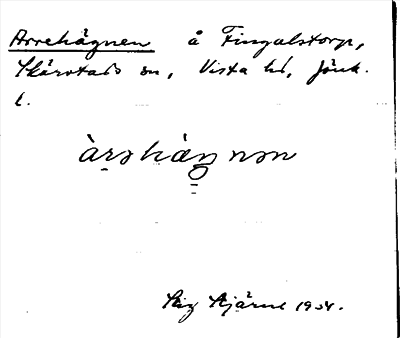 Arrehägnen å Fingalstorp,
Skärstads sn, Vista hd, Jönk.
l.
àrəhàgnən
Stig Stjärne 1934.